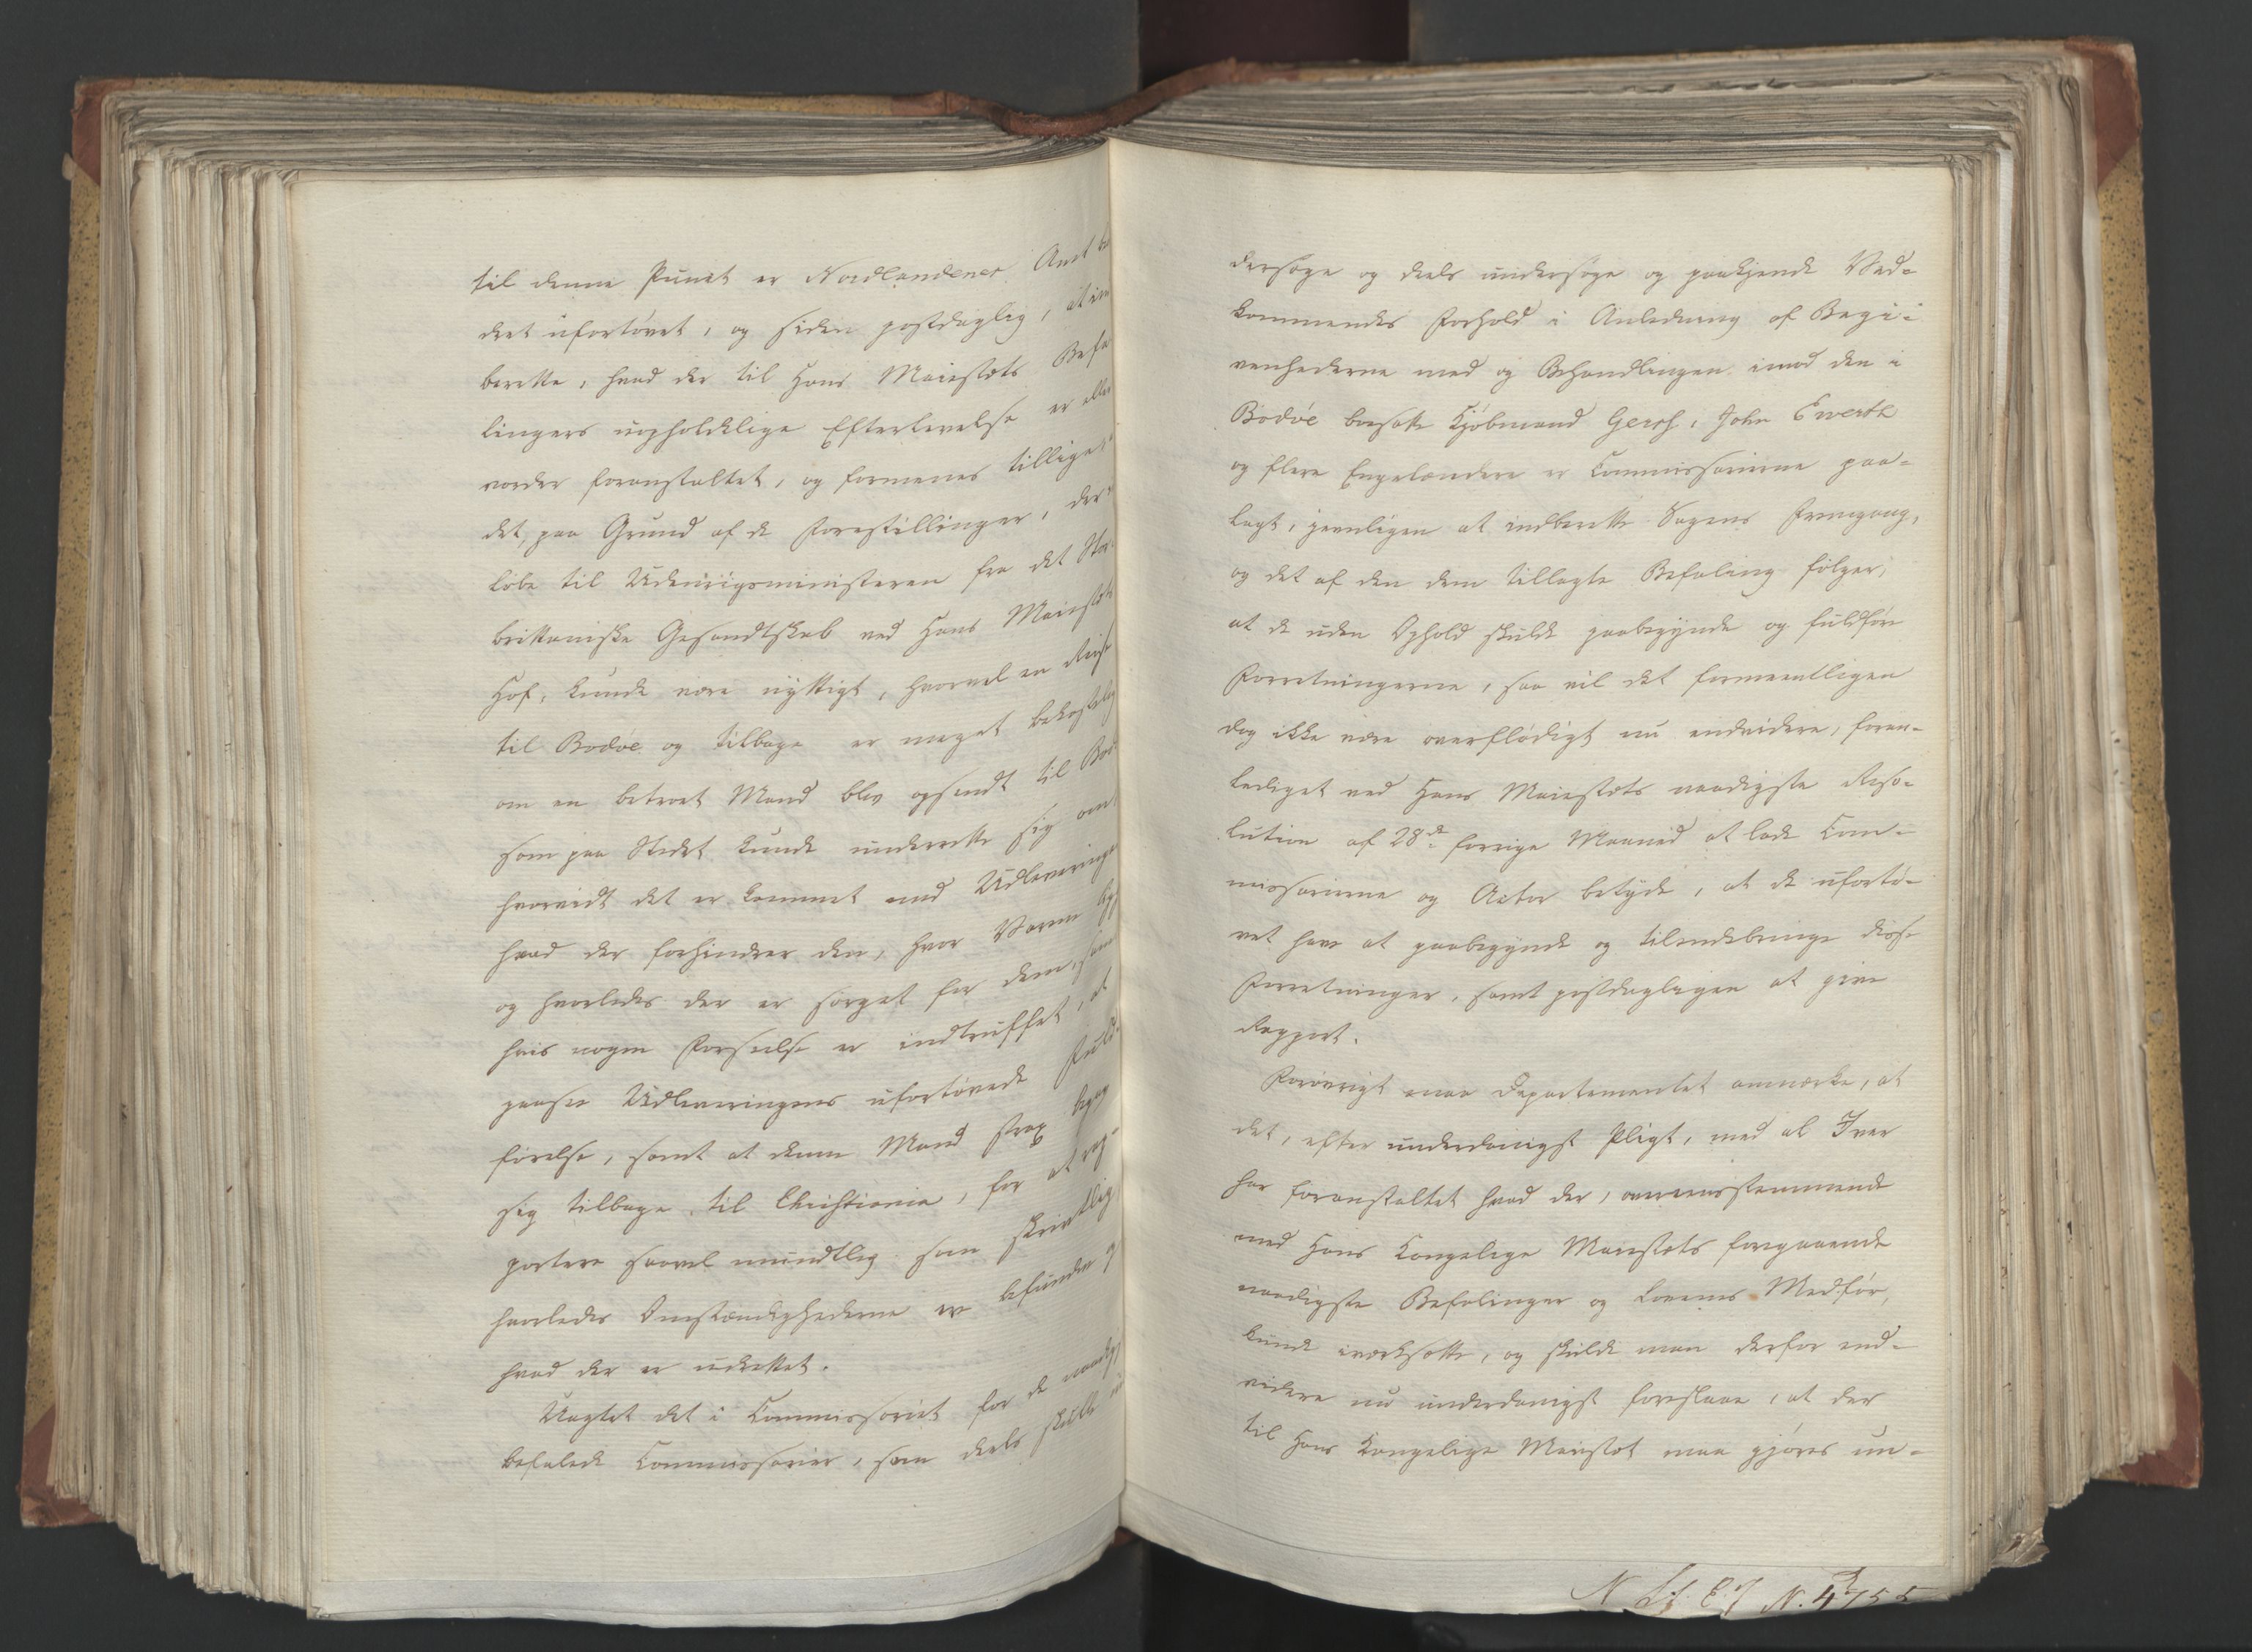 til denne Punct er Nordlandenes Amt be
dret ufortøvet, og siden postdaglig, at ind
berette, hvad der til Hans Maiestæts Befa
lingers uopholdelige Efterlevelse er eller
vorder foranstaltet, og formenes tillige
det, paa Grund af de Forestillinger, der
løbe til Udenrigsministeren fra det Stor
brittaniske Gesandtskab ved Hans Maiestæts
Hof, kunde være nyttigt, hvorvel en Reise
til Bodøe og tilbage er meget bekostelig
om en betroet Mand blev opsendt til Bod
som paa Stedet kunde underrette sig om
hvorvidt det er kommet med Udleveringen
hvad der forhindrer den, hvor Varene
og hvorledes der er sørget for dem, samt
hvis nogen Forseelse er indtruffet, at
paasee Udleveringens ufortøvede Fuld
førelse, samt at denne Mand strax begav
sig tilbage til Christiania, for at rap-
portere saavel mundtlig som skrivtlig
hvorledes Omstændighederne er befunden
hvad der er udrettet.
Uagtet det i Commissoriet for de naadigst
befalede Commissarier, som deels skulle
dersøge og deels undersøge og paakjende Ved-
kommendes Forhold i Anledning af Begi-
venhederne med og Behandlingen imod den i
Bodøe bosatte Kjøbmand Gersh, John Everth
og flere Engelændere er Commissarierne paa-
lagt, jevnligen at indberette Sagens Fremgang,
og det af den dem tillagte Befaling følger,
at de uden Ophold skulde paabegynde og fuldføre
Forretningerne, saa vil det formeentligen
dog ikke være overflødigt nu endvidere, foran-
lediget ved Hans Maiestæts naadigste Reso-
lution af 28de forrige Maaned at lade Com-
missarierne og Actor betyde, at de ufortø-
vet have at paabegynde og tilendebringe disse
Forretninger, samt postdagligen at give
Rapport.
Forøvrigt maa Departementet anmærke, at
det, efter underdanigst Pligt, med al Iver
har foranstaltet hvad der, overeensstemmende
med Hans Kongelige Maiestæts foregaaende
naadigste Befalinger og Lovenes Medfør,
kunde iværksætte, og skulde man derfor end-
videre nu underdanigst foreslaae, at der
til Hans Kongelige Maiestæt maa gjøres un-